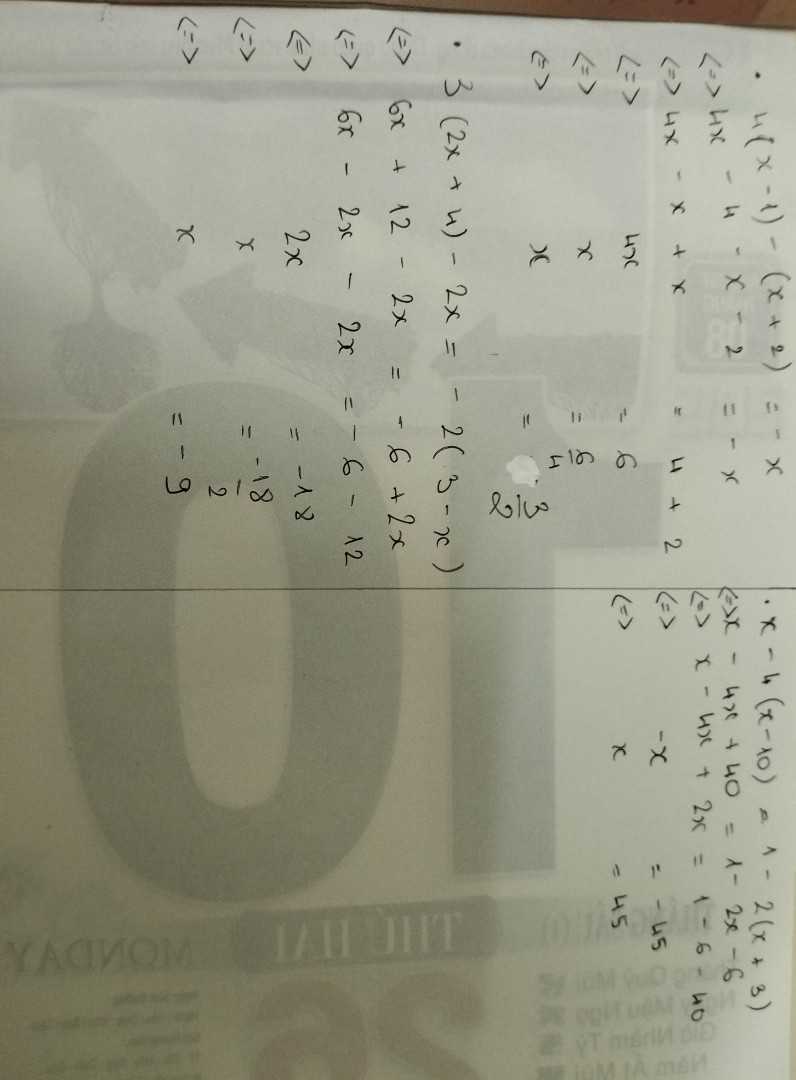 • 4(x - 1) - (x + 2) = - x
<=> 4x - 4 - x - 2 = - x
<=> 4x - x + x = 4 + 2
<=> 4x = 6
<=> x = 6/4
<=> x = 3/2
• 3 (2x + 4) - 2x = - 2( 3 - x )
<=> 6x + 12 - 2x = - 6 + 2x
<=> 6x - 2x - 2x = - 6 - 12
<=> 2x = - 18
<=> x = -18/2
<=> x = - 9
• x - 4 (x - 10) = 1 - 2(x + 3)
<=> x - 4x + 40 = 1 - 2x - 6
<=> x - 4x + 2x = 1 - 6 - 40
<=> -x = - 45
<=> x = 45
10
THÁNG SÁU (1)
THỨ HAI
MONDAY
26
Tháng Quý Mùi
Ngày Mậu Ngọ
Giờ Nhâm Tý
Năm Ất Mùi